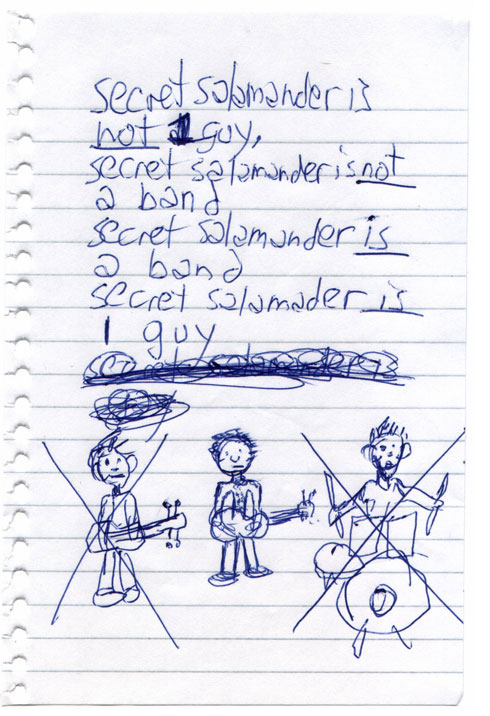 secret salamander is
not 1 guy,
secret salamander is not
a band
secret salamander is
a band
secret salamader is
1 guy